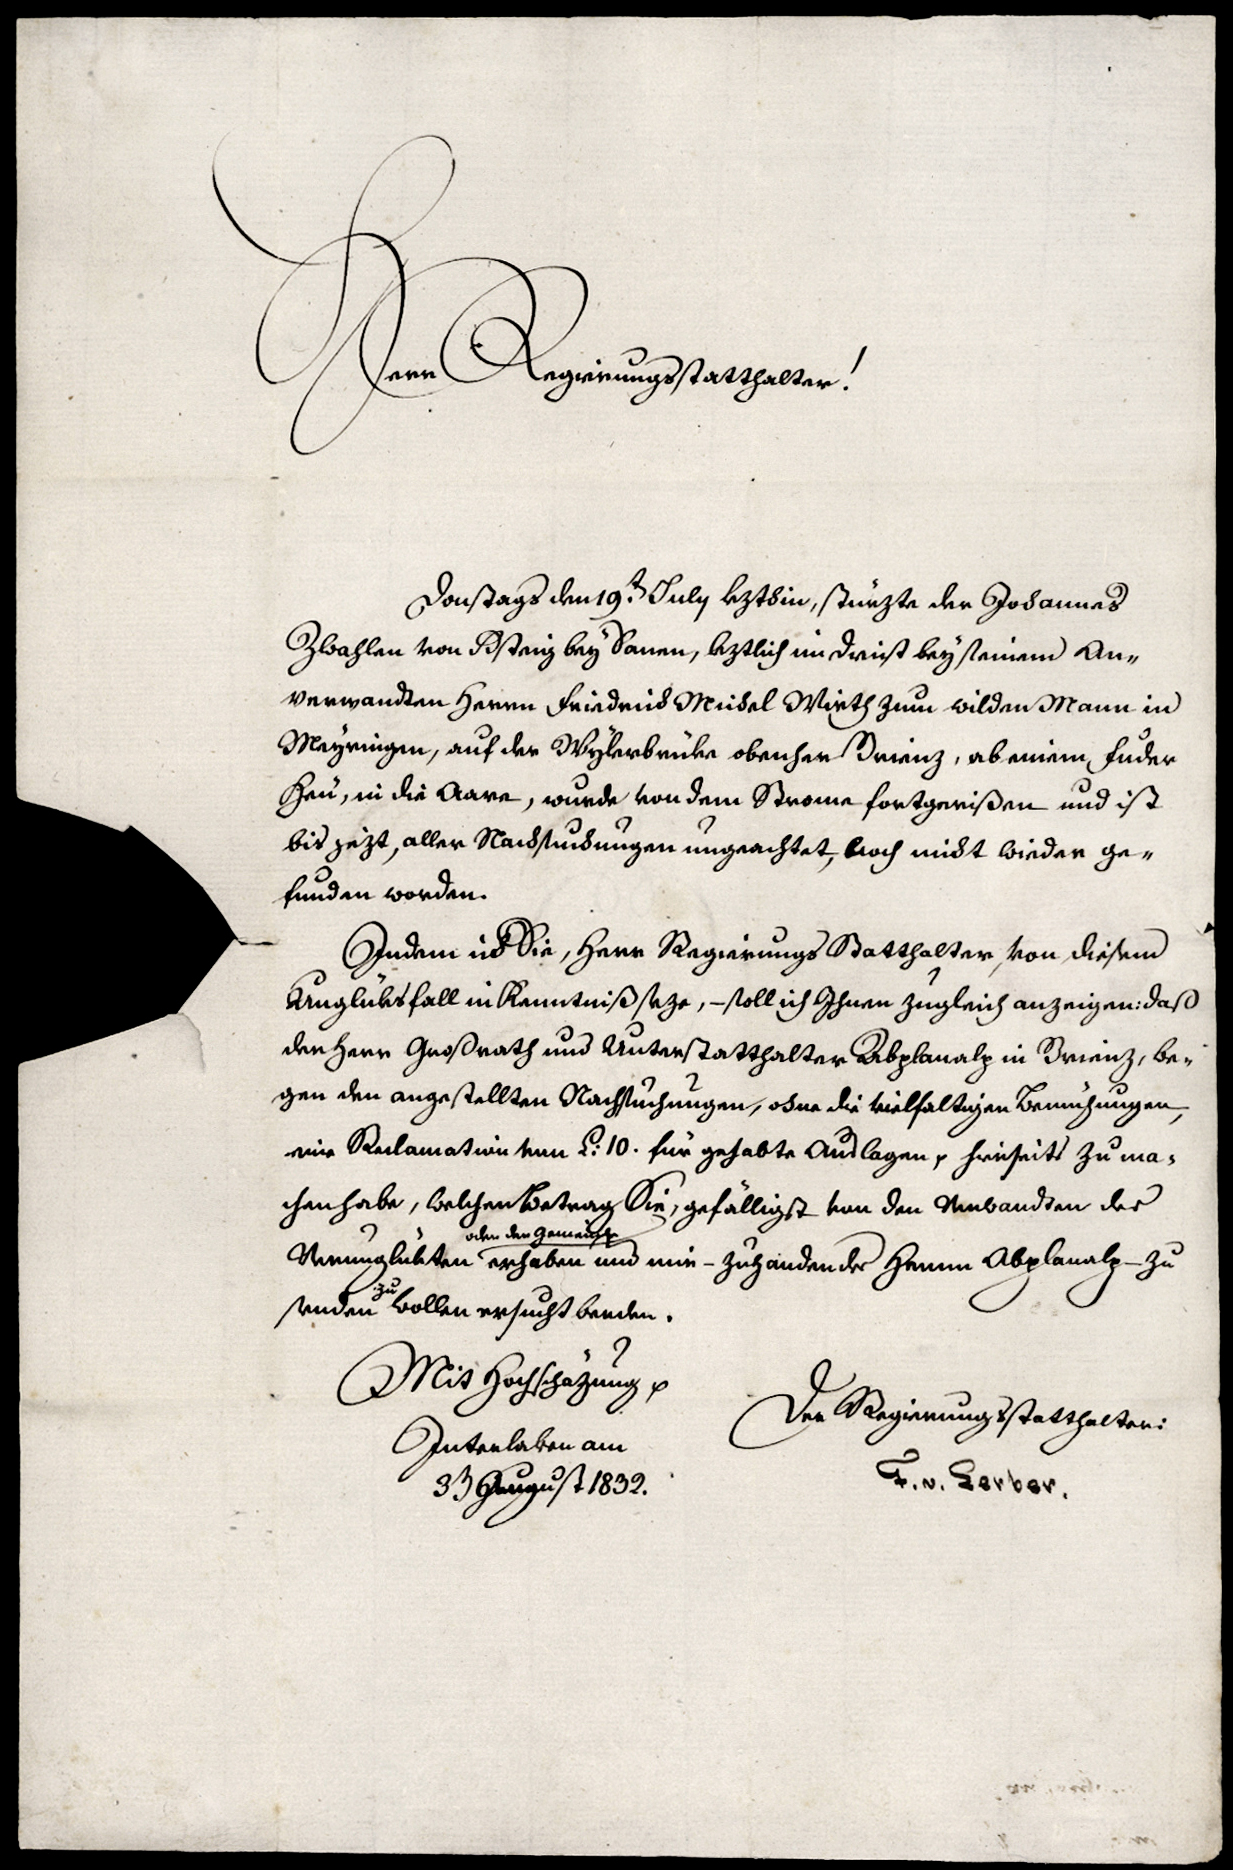 Herr Regierungsstatthalter!
Donstags den 19.t July lezthin, stürzte der Johannes
Zwahlen von Gsteig bey Sanen, leztlich im Dienst bey seinem An-
verwandten Herrn Friedrich Michel Wirth zum wilden Mann in
Meyringen, auf der Wylerbrüke obenher Brienz, ab einem Fuder
Heü, in die Aare, wurde von dem Strome fortgerißen und ist
bis jezt, aller Nachsuchungen ungeachtet, noch nicht wieder ge-
funden worden.
Indem ich Sie, Herr Regierungs Statthalter, von diesem
Unglüksfall in Kenntniß seze, – soll ich Ihnen zugleich anzeigen: daß
der Herr Großrath und Unterstatthalter Abplanalp in Brienz, we-
gen den angestellten Nachsuchungen, ohne die vielfaltigen Bemühungen,
eine Reclamation von L: 10. für gehabte Auslagen, hierseits zu ma-
chen habe, welchen Betrag Sie, gefälligst von den Verwandten des
Verunglükten oder der Gemeinde erheben und mir – zuhanden des Herrn Abplanalp – zu
senden zu wollen ersucht werden.
Mit Hochschäzung
Der Regierungsstatthalter:
Interlaken am
3.t August 1832.
F. v. Lerber.